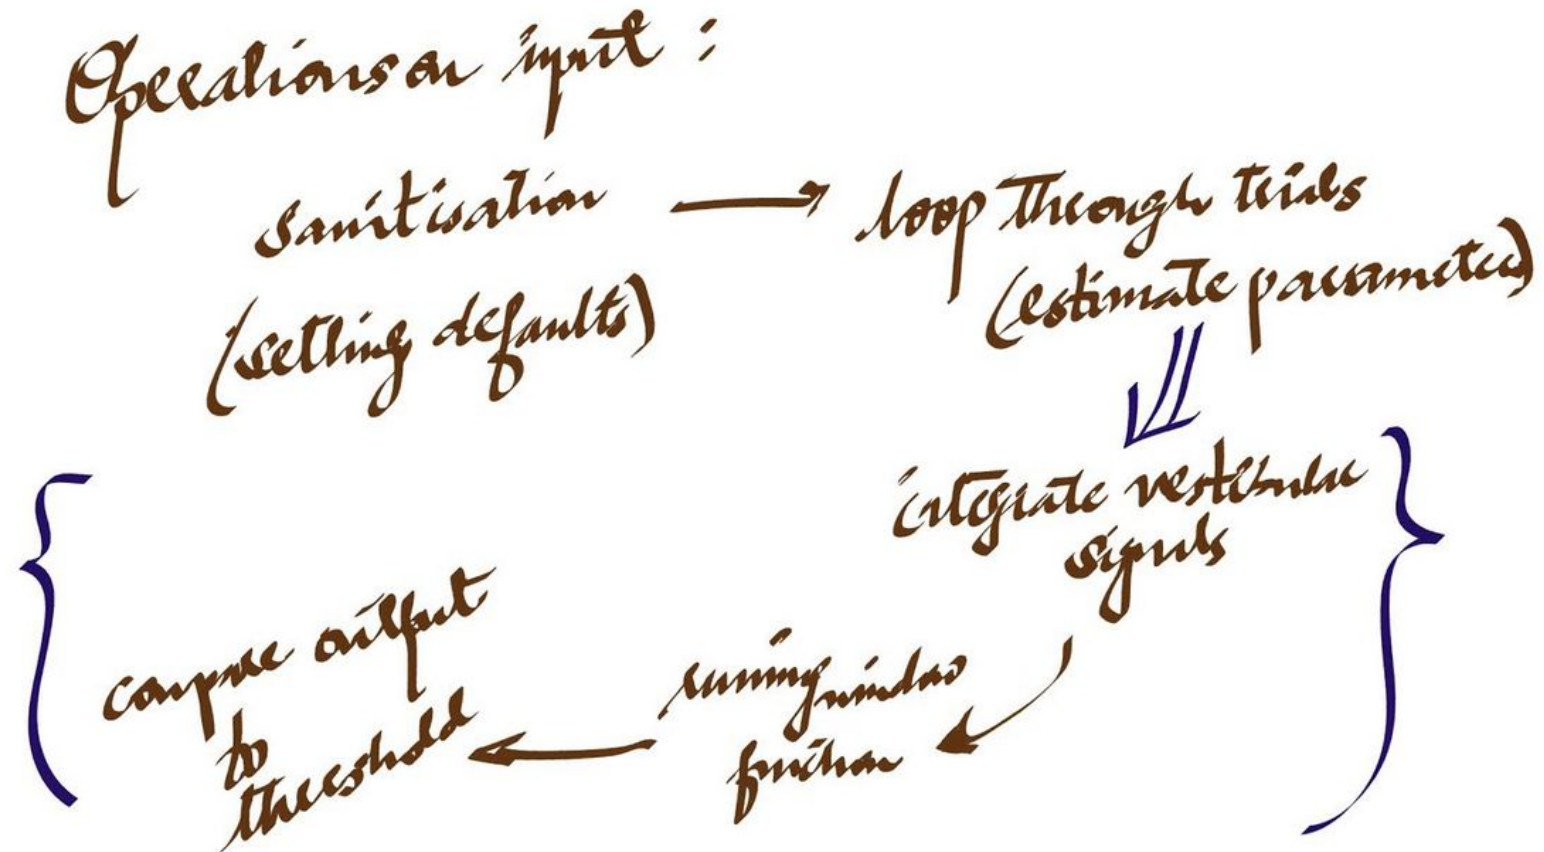 Operations on input :
sanitisation → loop through trials
(setting defaults) (estimate parameters)
integrate vestibular
signals
running window
function
compare output
to
threshold